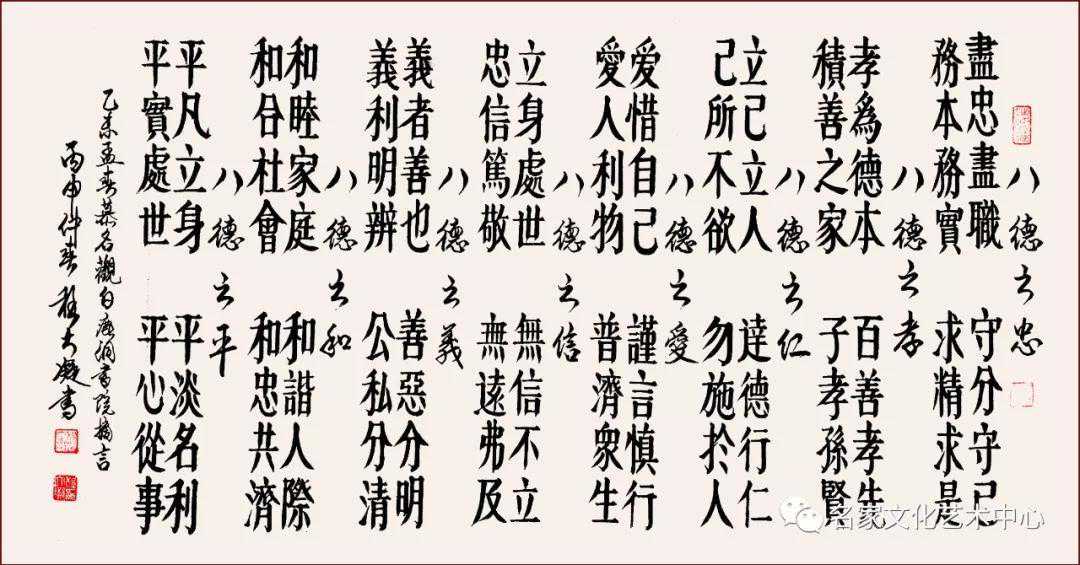 八德之忠
盡忠盡職 守分守己
務本務實 求精求是
八德之孝
孝為德本 百善孝先
積善之家 子孝孫賢
八德之仁
立己立人 達德行仁
己所不欲 勿施於人
八德之愛
爱惜自己 謹言慎行
愛人利物 普濟衆生
八德之信
立身處世 無信不立
忠信篤敬 無遠弗及
八德之義
義者善也 善惡分明
義利明辨 公私分清
八德之和
和睦家庭 和諧人際
和合社會 和忠共濟
八德之平
平凡立身 平淡名利
平實處世 平心從事
乙未孟春慕名觀白鹿洞書院摘言
丙申仲春 大凝書
名家文化艺术中心